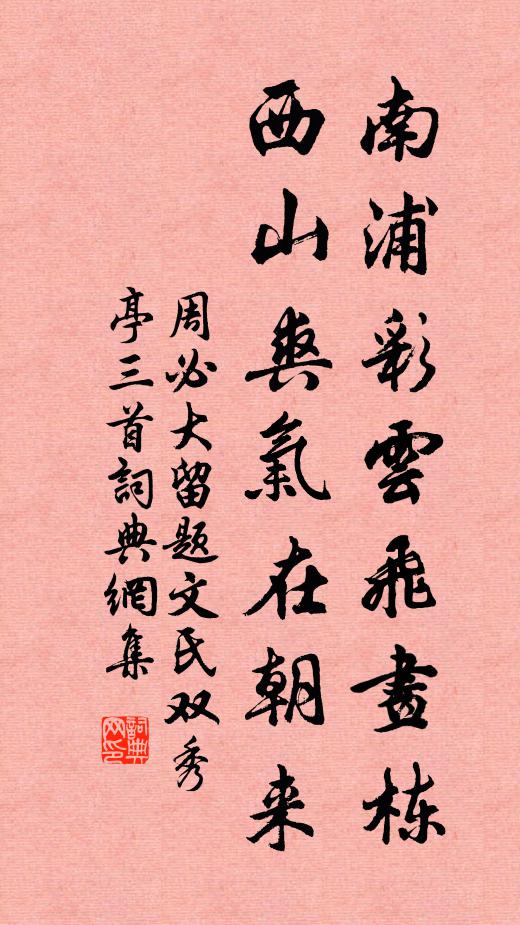 南浦彩雲飛畫栋
西山爽氣在朝来
周必大留题文氏双秀
亭三首詞典網集
詞典网印